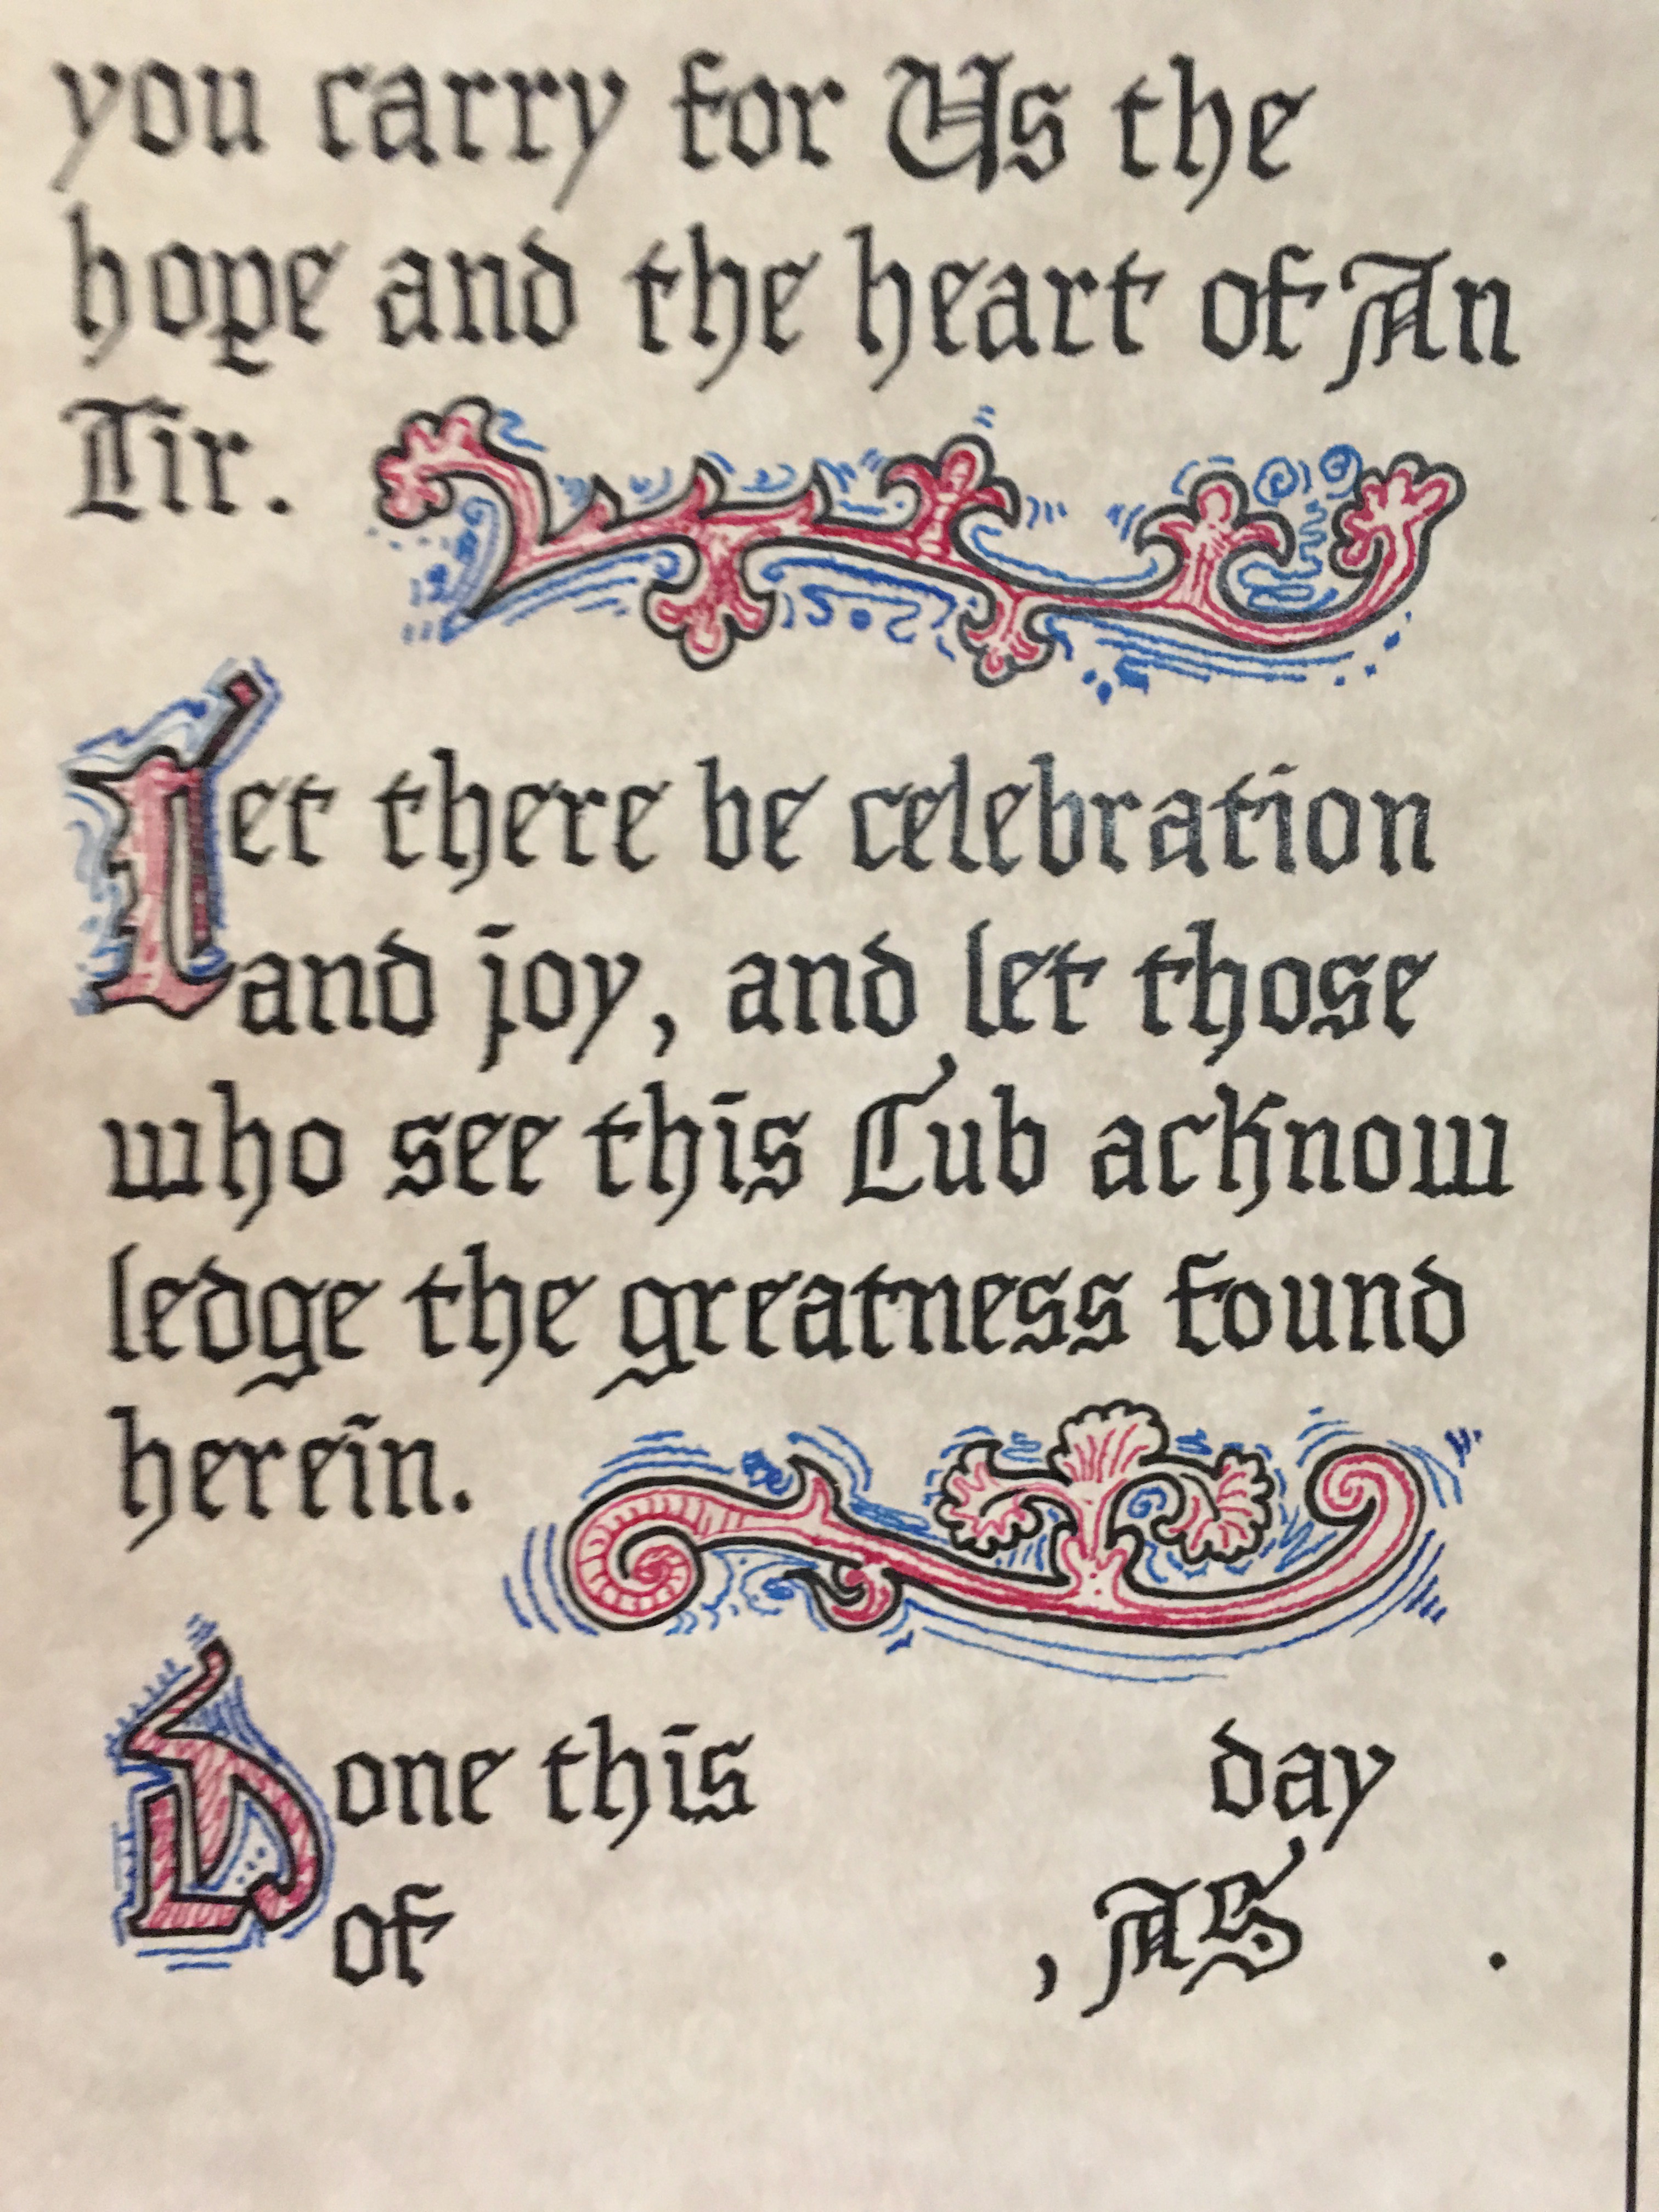 you carry for Us the
hope and the heart of An
Tir.
Let there be celebration
and joy, and let those
who see this Cub acknow
ledge the greatness found
herein.
Done this day
of , AS .